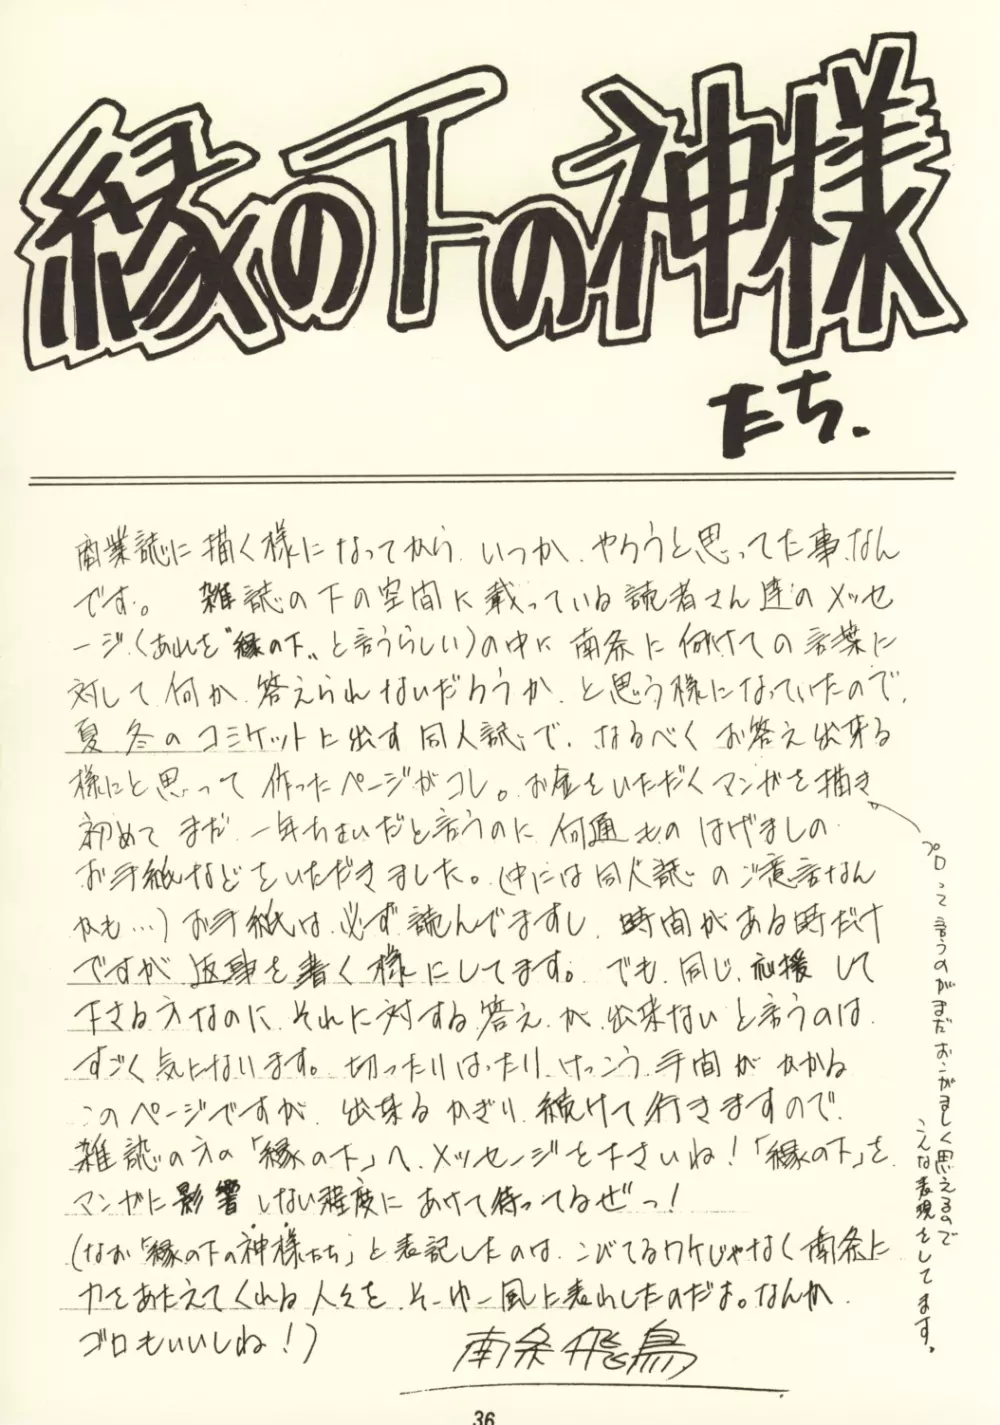 縁の下の神様
たち.
商業誌に描く様になってから、いつか、やろうと思ってた事なん
です。 雑誌の下の空間に載っている読者さん達のメッセ
ージ(あれを"縁の下"と言うらしい)の中に南条に向けての言葉に
対して何か、答えられないだろうか、と思う様になっていたので、
夏冬のコミケットに出す同人誌で、なるべくお答え出来る
様にと思って作ったページがコレ。お金をいただくマンガを描き
初めてまだ、一年ちょいだと言うのに何通ものはげましの
お手紙などをいただきました。(中には同人誌のご意話なん
かも…)お手紙は必ず読んでますし、時間がある時だけ
ですが返事を書く様にしてます。でも、同じ、応援して
下さる方なのに、それに対する答えが出来ないと言うのは、
すごく気になります。切ったりはったり、けっこう手間がかかる
このページですが、出来るかぎり続けて行きますので、
雑誌の方の「縁の下」へ、メッセージを下さいね!「縁の下」を、
マンガに影響しない程度にあけて待ってるぜっ!
(なお「縁の下の神様たち」と表記したのは、こびてるワケじゃなく南条に
力をあたえてくれる人々を、そーゆー風に表わしたのだよ。なんか、
ゴロもいいしね!)
南条飛鳥
プロって言うのがまだおこがましく思えるので
こんな表現をしてます。
36